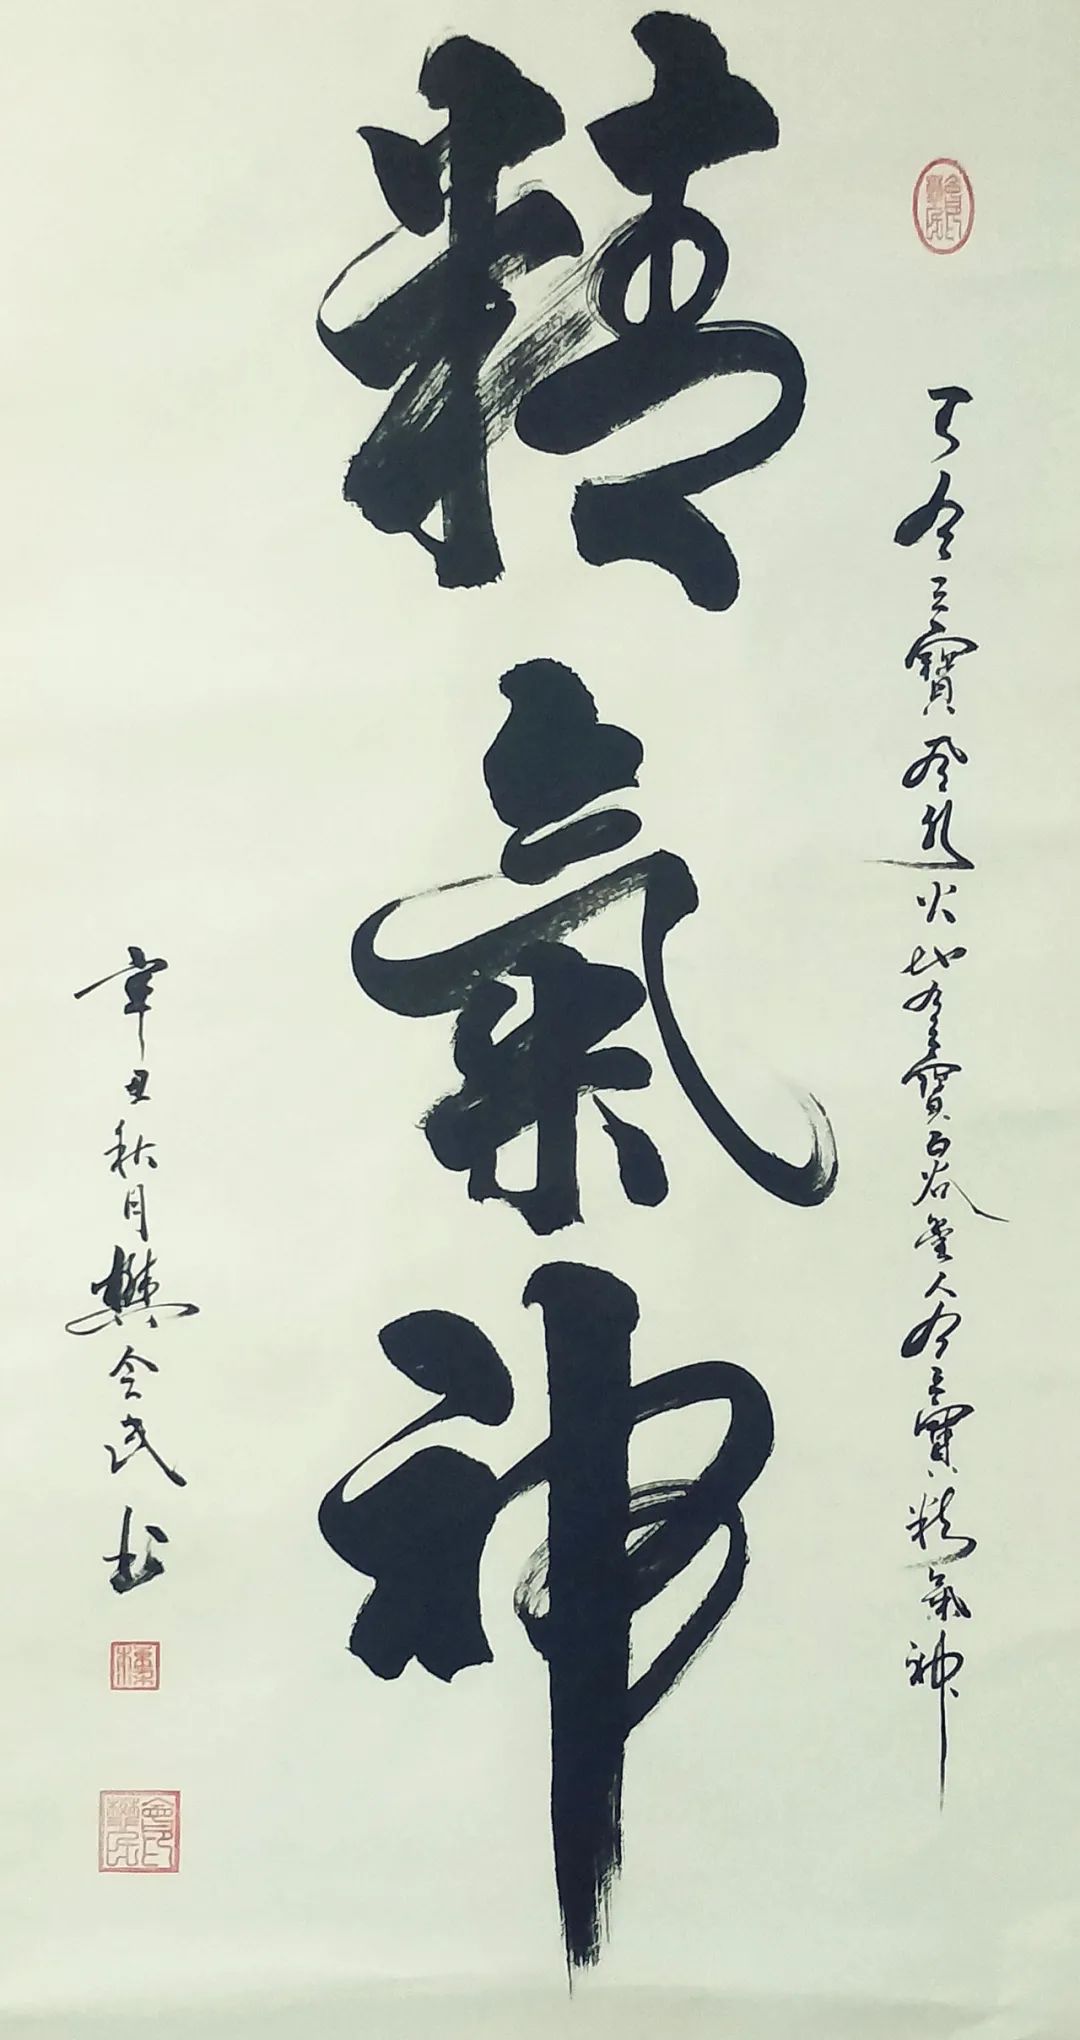 天有三寶 火地有三寶 谷 人有三寶精氣神
精氣神
辛丑秋月樊会民书
樊會民印